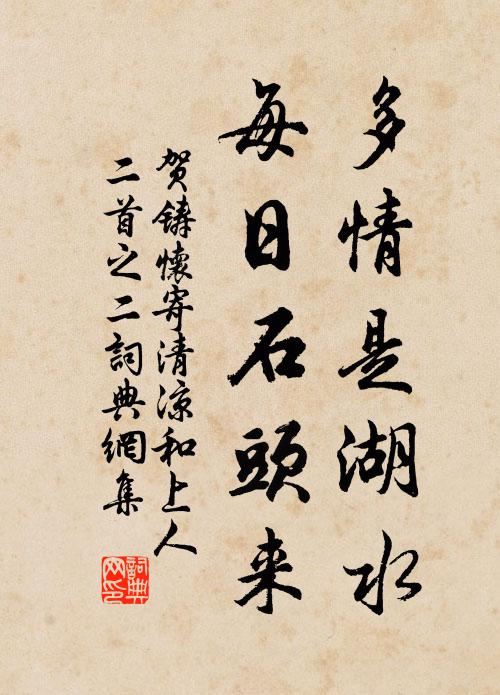 多情是湖水
每日石頭来
賀鑄懷寄清凉和上人
二首之二詞典網集
詞典
网印